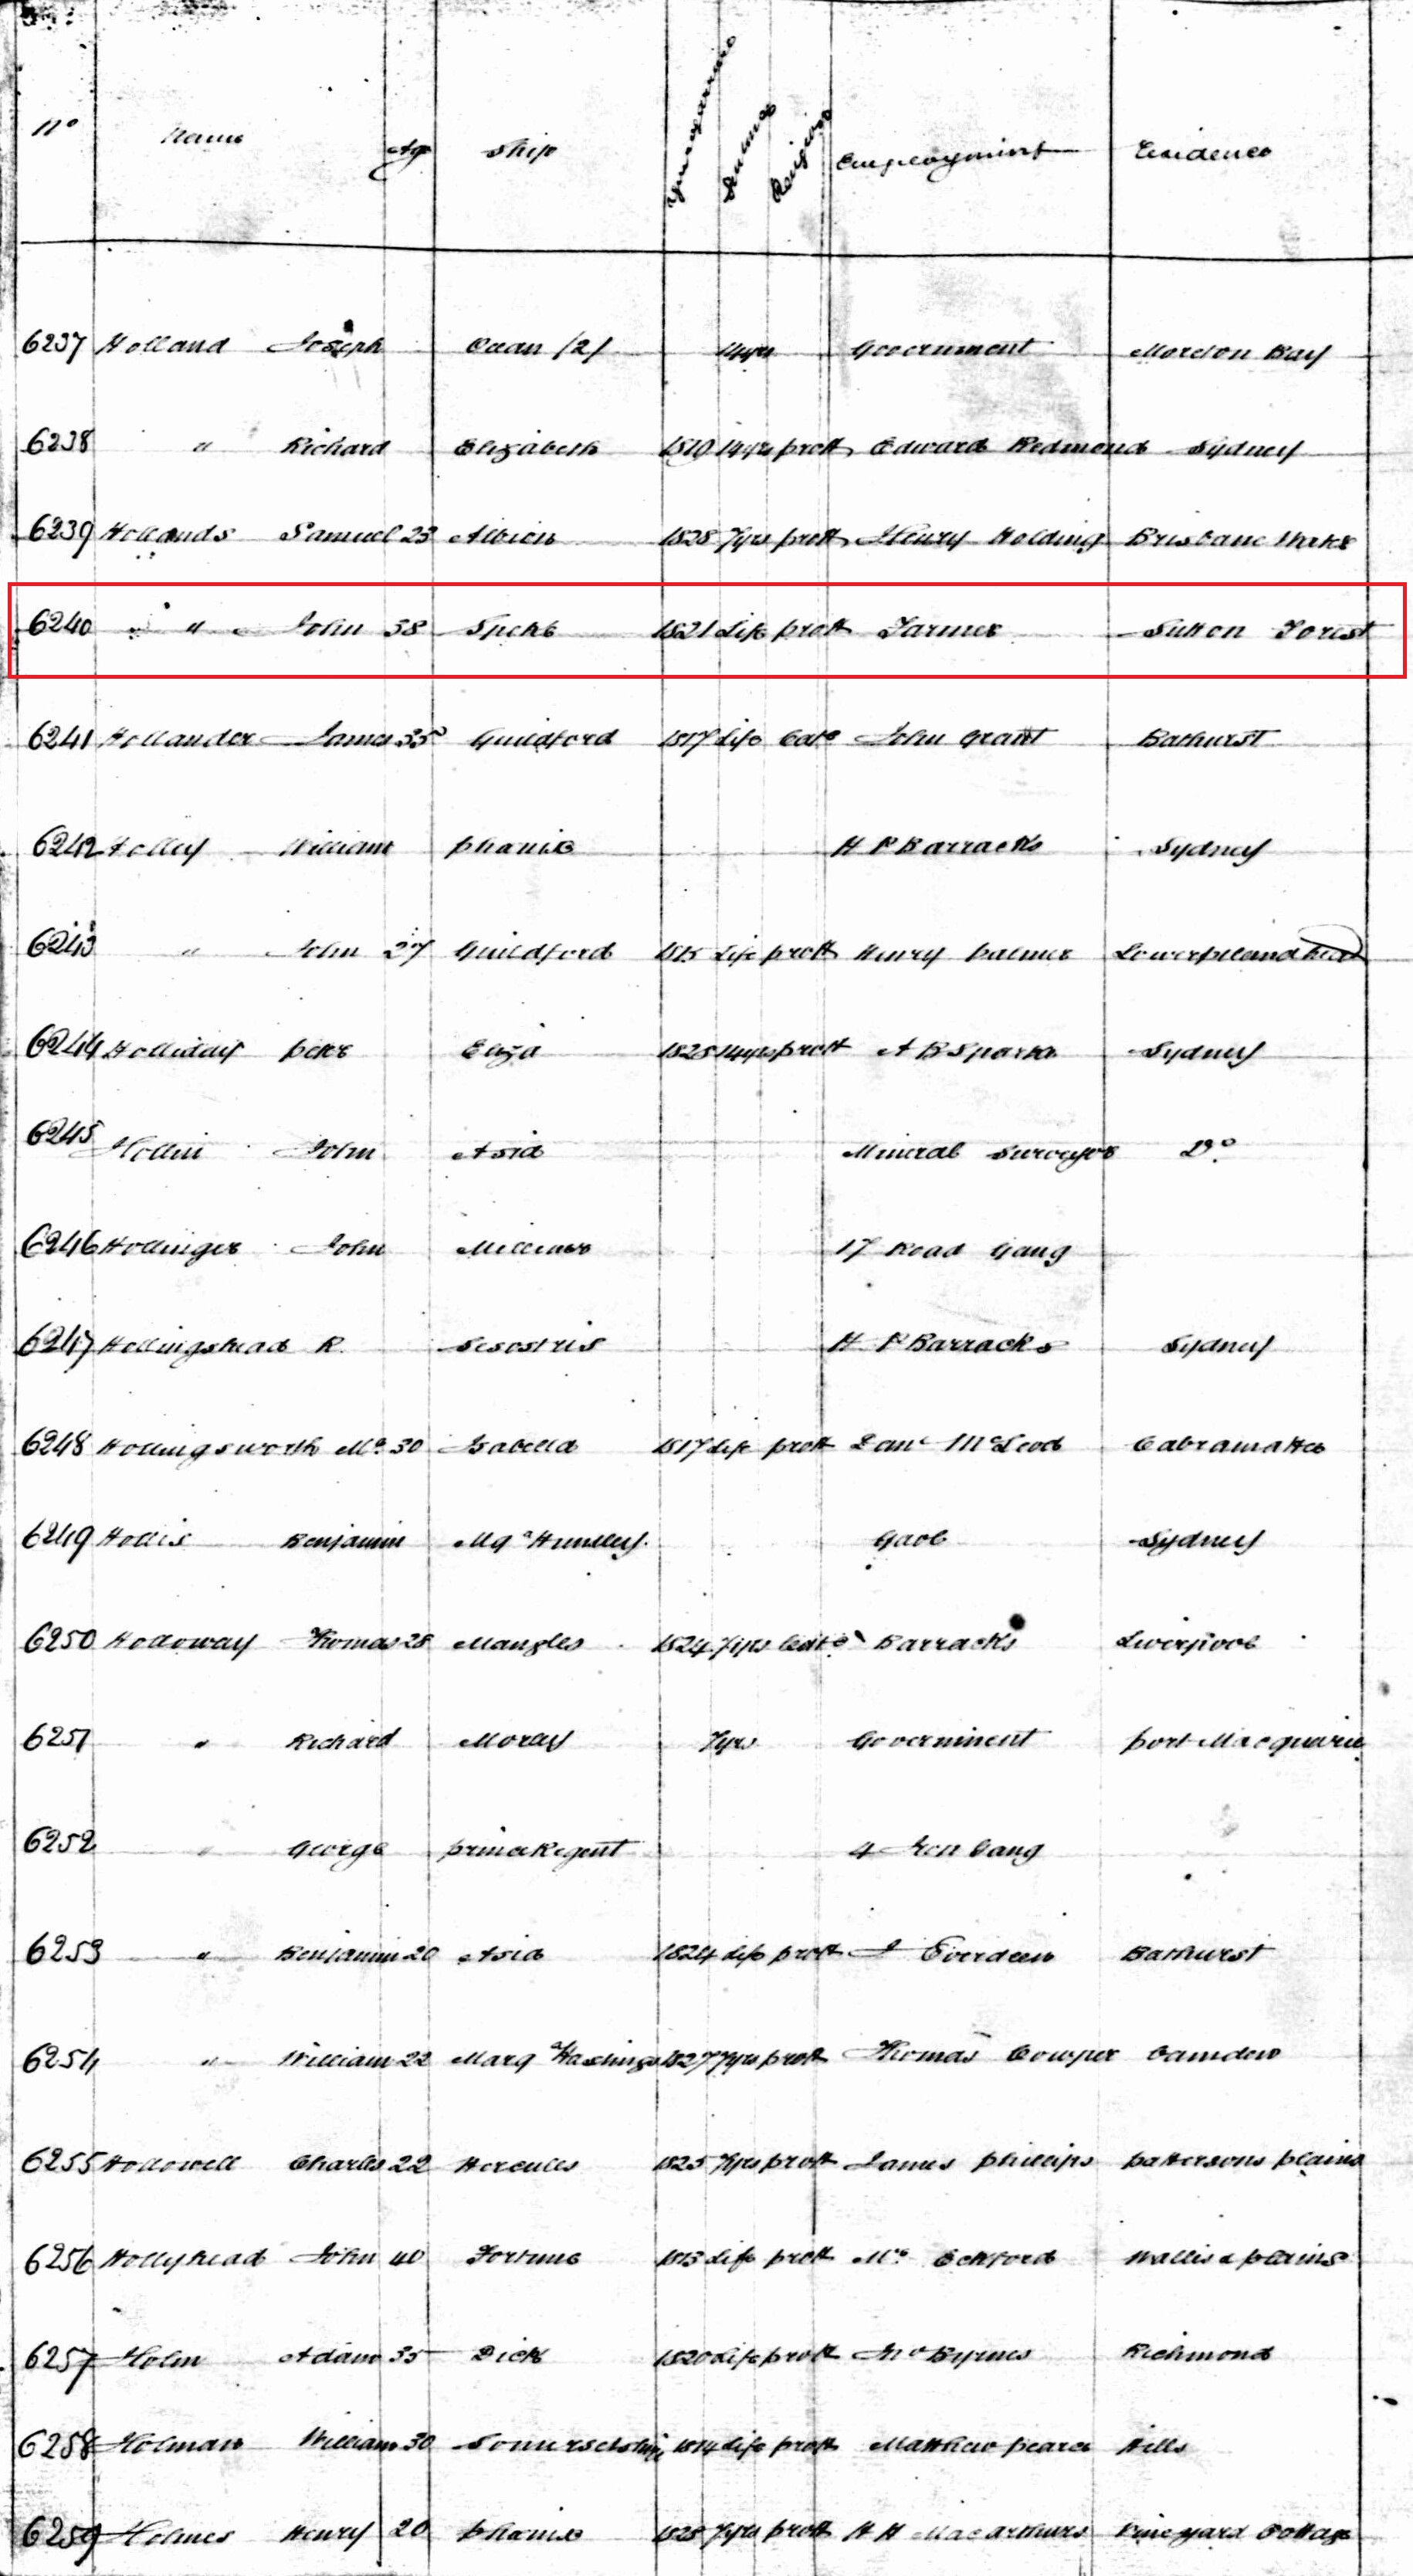 No Name Age Ship Year of arrival Sentence Religion Employment Residence
6237 Holland Joseph Ocean (2) 14 yrs Government Moreton Bay
6238 " Richard Elizabeth 1819 14 yrs prott Edward Redmond Sydney
6239 Hollands Samuel 23 Albion 1828 7 yrs prott Henry Holding Brisbane Water
6240 " John 38 Speke 1821 Life prott Farmer Sutton Forest
6241 Hollander James 35 Guildford 1817 Life Cato John Grant Bathurst
6242 Holley William phanix H P Barracks Sydney
6243 " John 27 Guildford Life prott Henry palmer Lower
6244 Holliday peter Eliza 1828 14 yrs prott A B Spark Sydney
6245 Hollin John Asia Mineral Surveyor Do
6246 Hollinger John 17 Road Gang
6247 Hollingshead R. Sesostris H P Barracks Sydney
6248 Hollingsworth 30 Isabella 1817 Life prott McLeod Cabramatta
6249 Hollis Benjamin Mqs Huntley Gaol Sydney
6250 Holloway Thomas 28 Mangles 1824 7 yrs Cato Barracks Liverpool
6251 " Richard Moray 7 yrs Government port Macquarie
6252 " George prince Regent 4 Iron Gang
6253 " Benjamin 20 Asia 1824 Life prott J Everdeen Bathurst
6254 " William 22 Marq Hastings 1827 7 yrs prott Thomas Cowper Camden
6255 Hollowell Charles 22 Hercules 1825 7 yrs prott James phillips pattersons plains
6256 Hollyhead John 40 Fortune 1813 Life prott Mr Eckford Wallis plains
6257 Holm Adam 35 Dick 1820 Life prott Jno Byrnes Richmond
6258 Holman William 30 Somersetshire 1814 Life prott Matthew pearce Hills
6259 Holmes Henry 20 phanix 1828 7 yrs prott H H Macarthurs Vineyard Cottage